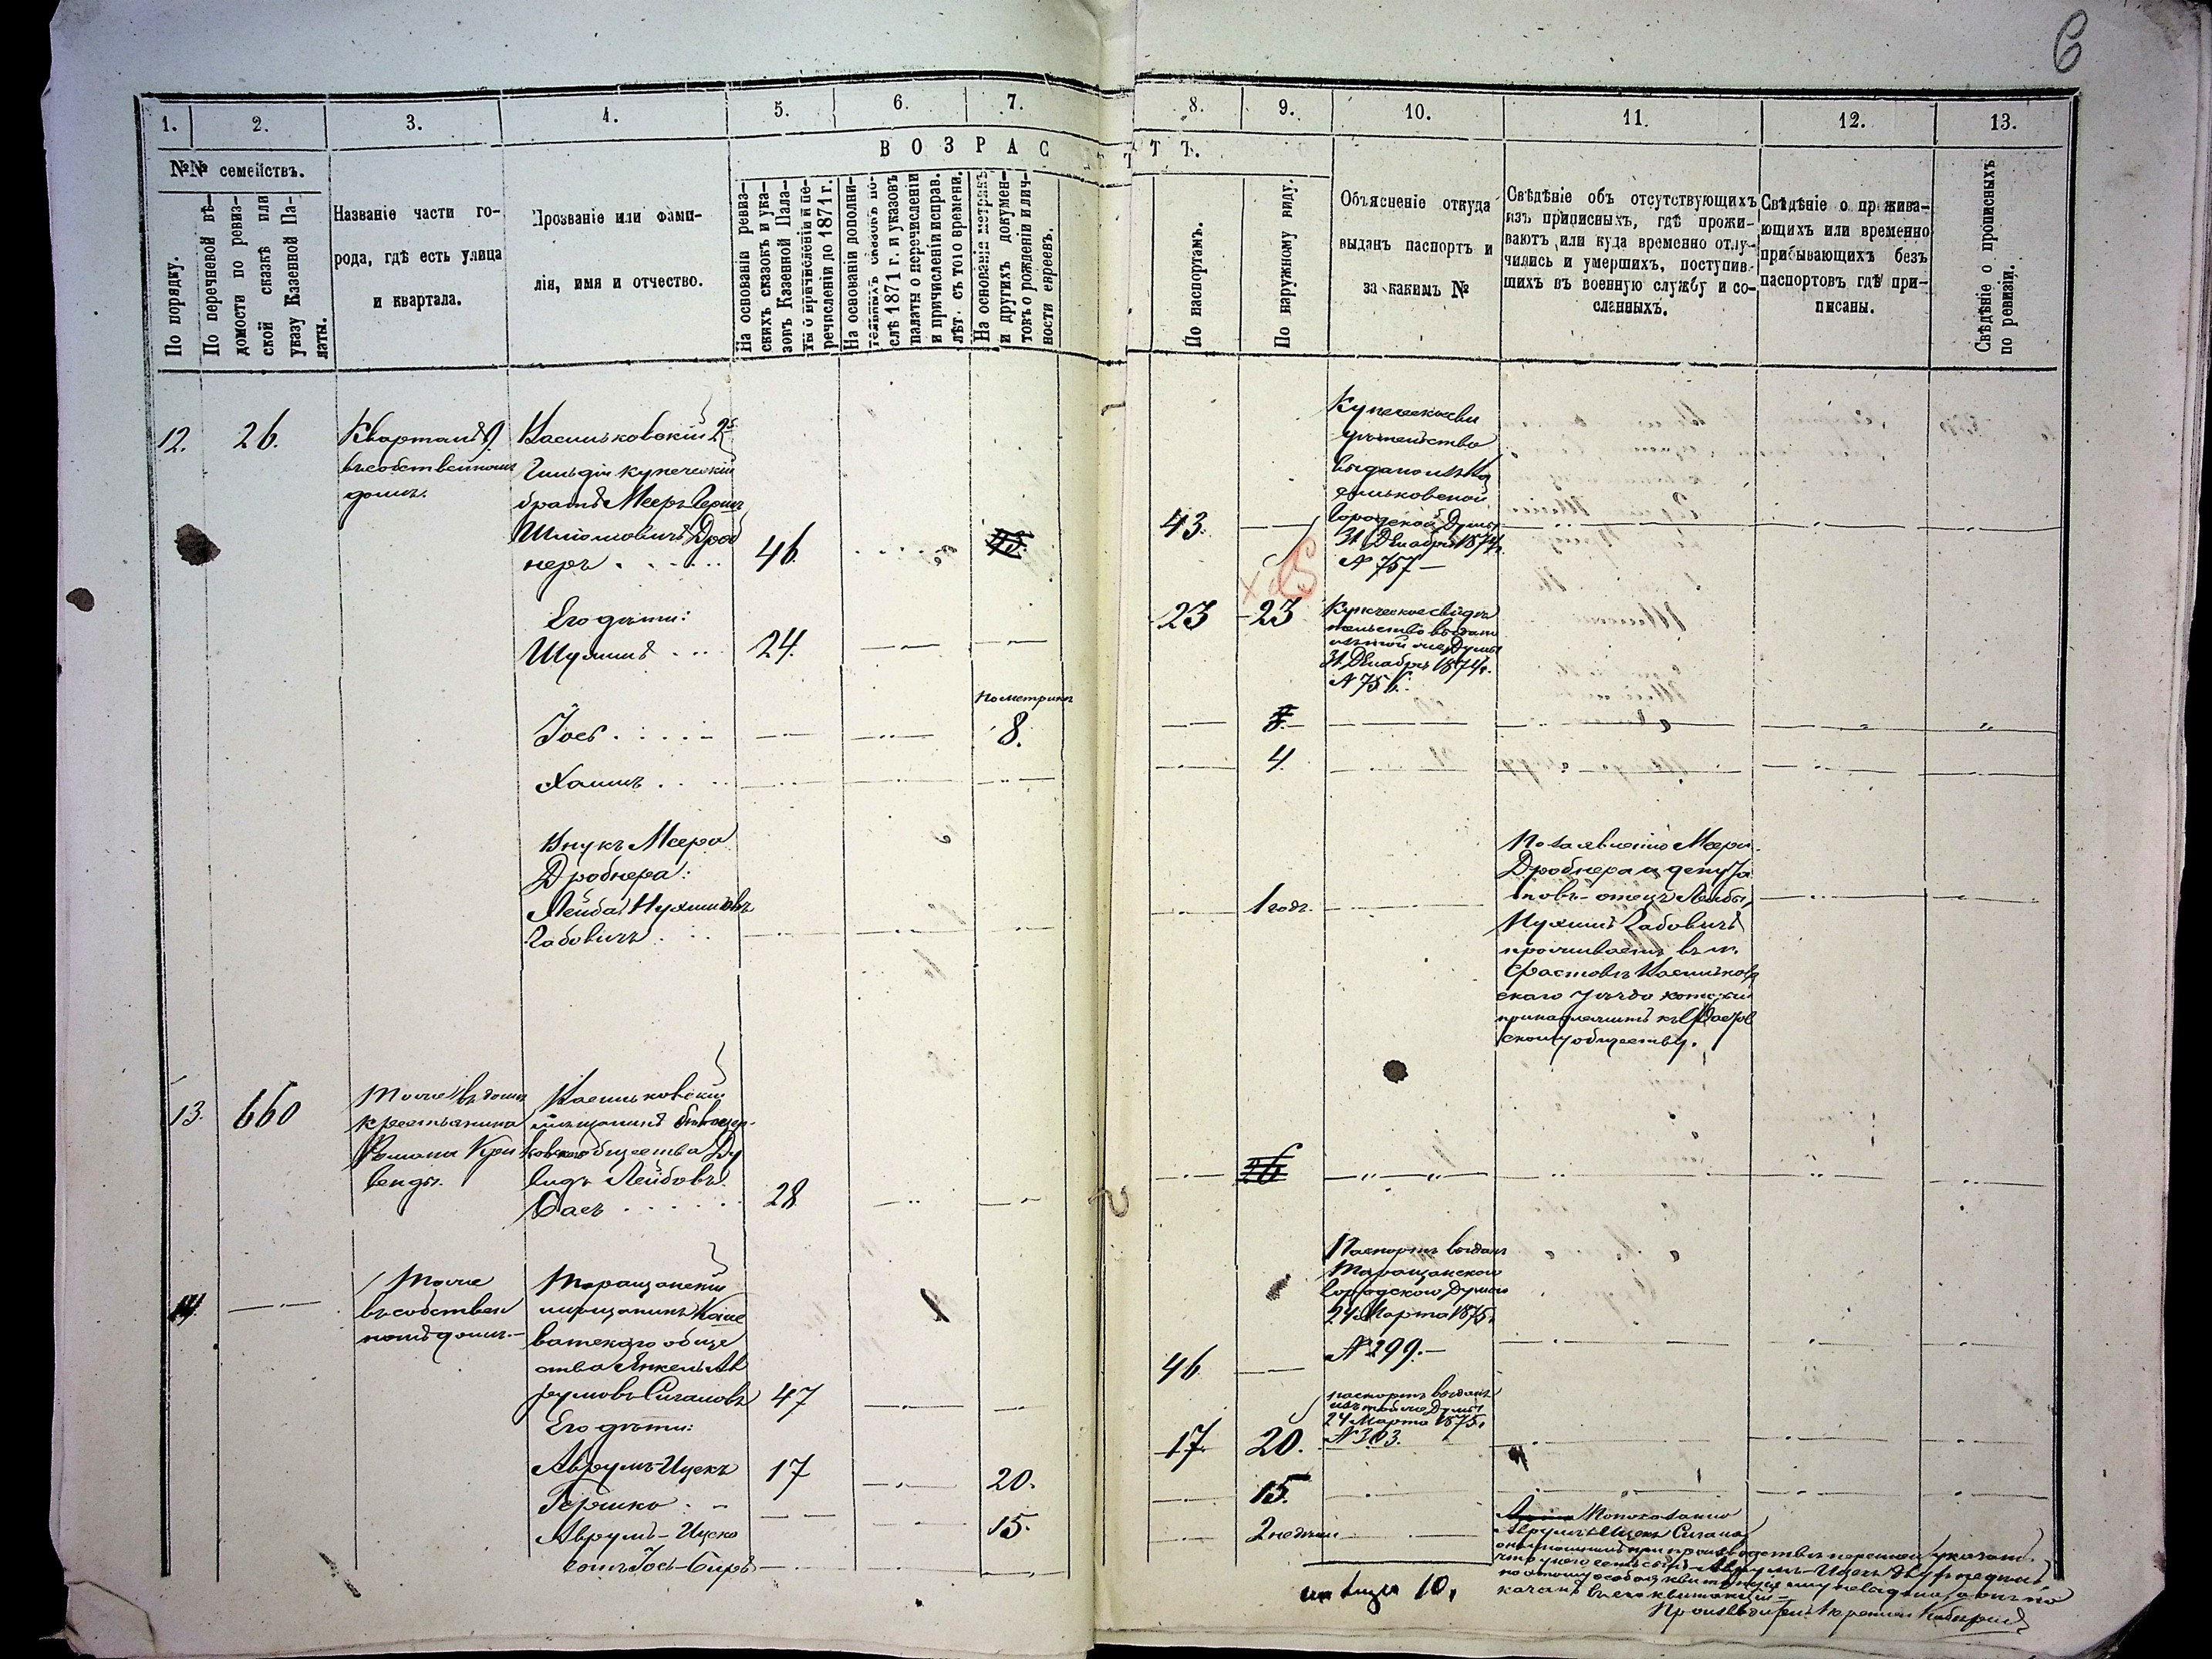 6
1. 2. 3. 4. 5. 6. 7. 8. 9. 10. 11. 12. 13.
№№ семействъ.
В О З Р А С Т Ъ.
По порядку.
По перечневой вѣ-
домости по ревиз-
ской сказкѣ или
указу Казенной Па-
латы.
Названіе части го-
рода, гдѣ есть улица
и квартала.
Прозваніе или фами-
лія, имя и отчество.
На основаніи ревиз-
скихъ сказокъ и ука-
зовъ Казенной Пала-
ты о причисленіи и пе-
речисленіи до 1871 г.
На основаніи дополни-
тельныхъ сказокъ по-
слѣ 1871 г. и указовъ
палаты о перечисленіи
и причисленіи исправ.
лѣт. съ того времени.
На основаніи метрикъ
и другихъ докумен-
товъ о рожденіи и лич-
ности евреевъ.
По паспортамъ.
По наружному виду.
Объясненіе откуда
выданъ паспортъ и
за какимъ №
Свѣдѣніе объ отсутствующихъ
изъ приписныхъ, гдѣ прожи-
ваютъ или куда временно отлу-
чились и умершихъ, поступив-
шихъ въ военную службу и со-
сланныхъ.
Свѣдѣніе о прожива-
ющихъ или временно
прибывающихъ безъ
паспортовъ гдѣ при-
писаны.
Свѣдѣніе о прописныхъ
по ревизіи.
12. 26.
Кварталъ 9.
въ собственномъ
домѣ.
Васильковскій 2й
Гильдіи купеческій
братъ Мееръ Герш
Шліомовичъ Дроб
неръ 46. 43.
Купеческое сви
дѣтельство
выдано изъ Ва
сильковской
Городской Думы
31 Декабря 1874 г.
№ 757
Его дѣти:
Шулимъ 24. 23 23
Купеческое свидѣ
тельство выдано
изъ той же Думы
31 Декабря 1874 г.
№ 756.
по метрикѣ
Іось 8.
Хаимъ 4.
Внукъ Меера
Дробнера:
Лейба Нухимовъ
Габовичъ 1 годъ.
По заявленію Меера
Дробнера и депута
товъ отецъ Лейбы,
Нухимъ Габовичъ
проживаетъ въ м.
Фастовѣ Васильков
скаго уѣзда который
принадлежитъ къ Фастов
скому обществу.
13. 660
Тоже въ домѣ
крестьянина
Романа Кри
венды.
Васильковскій
мѣщанинъ Бѣлоцер-
ковскаго общества Ду
видъ Лейбовъ
Сасъ 28 26
14.
Тоже
въ собствен
номъ домѣ.
Таращанскій
мѣщанинъ Каше
ватскаго обще
ства Янкель Ав
румовъ Сигаловъ 47 46
Паспортъ выданъ
Таращанскою
Городскою Думою
24 Марта 1875 г.
№ 299.
Его дѣти:
Аврумъ-Ицекъ 17 20. 17 20.
паспортъ выданъ
изъ той же Думы
24 Марта 1875 г.
№ 303.
Гершко 15. 15.
Аврумъ-Ицека
сынъ Іось-Беръ 2 недѣли
По показанію
Аврумъ-Ицека Сигала
на лицѣ 10,